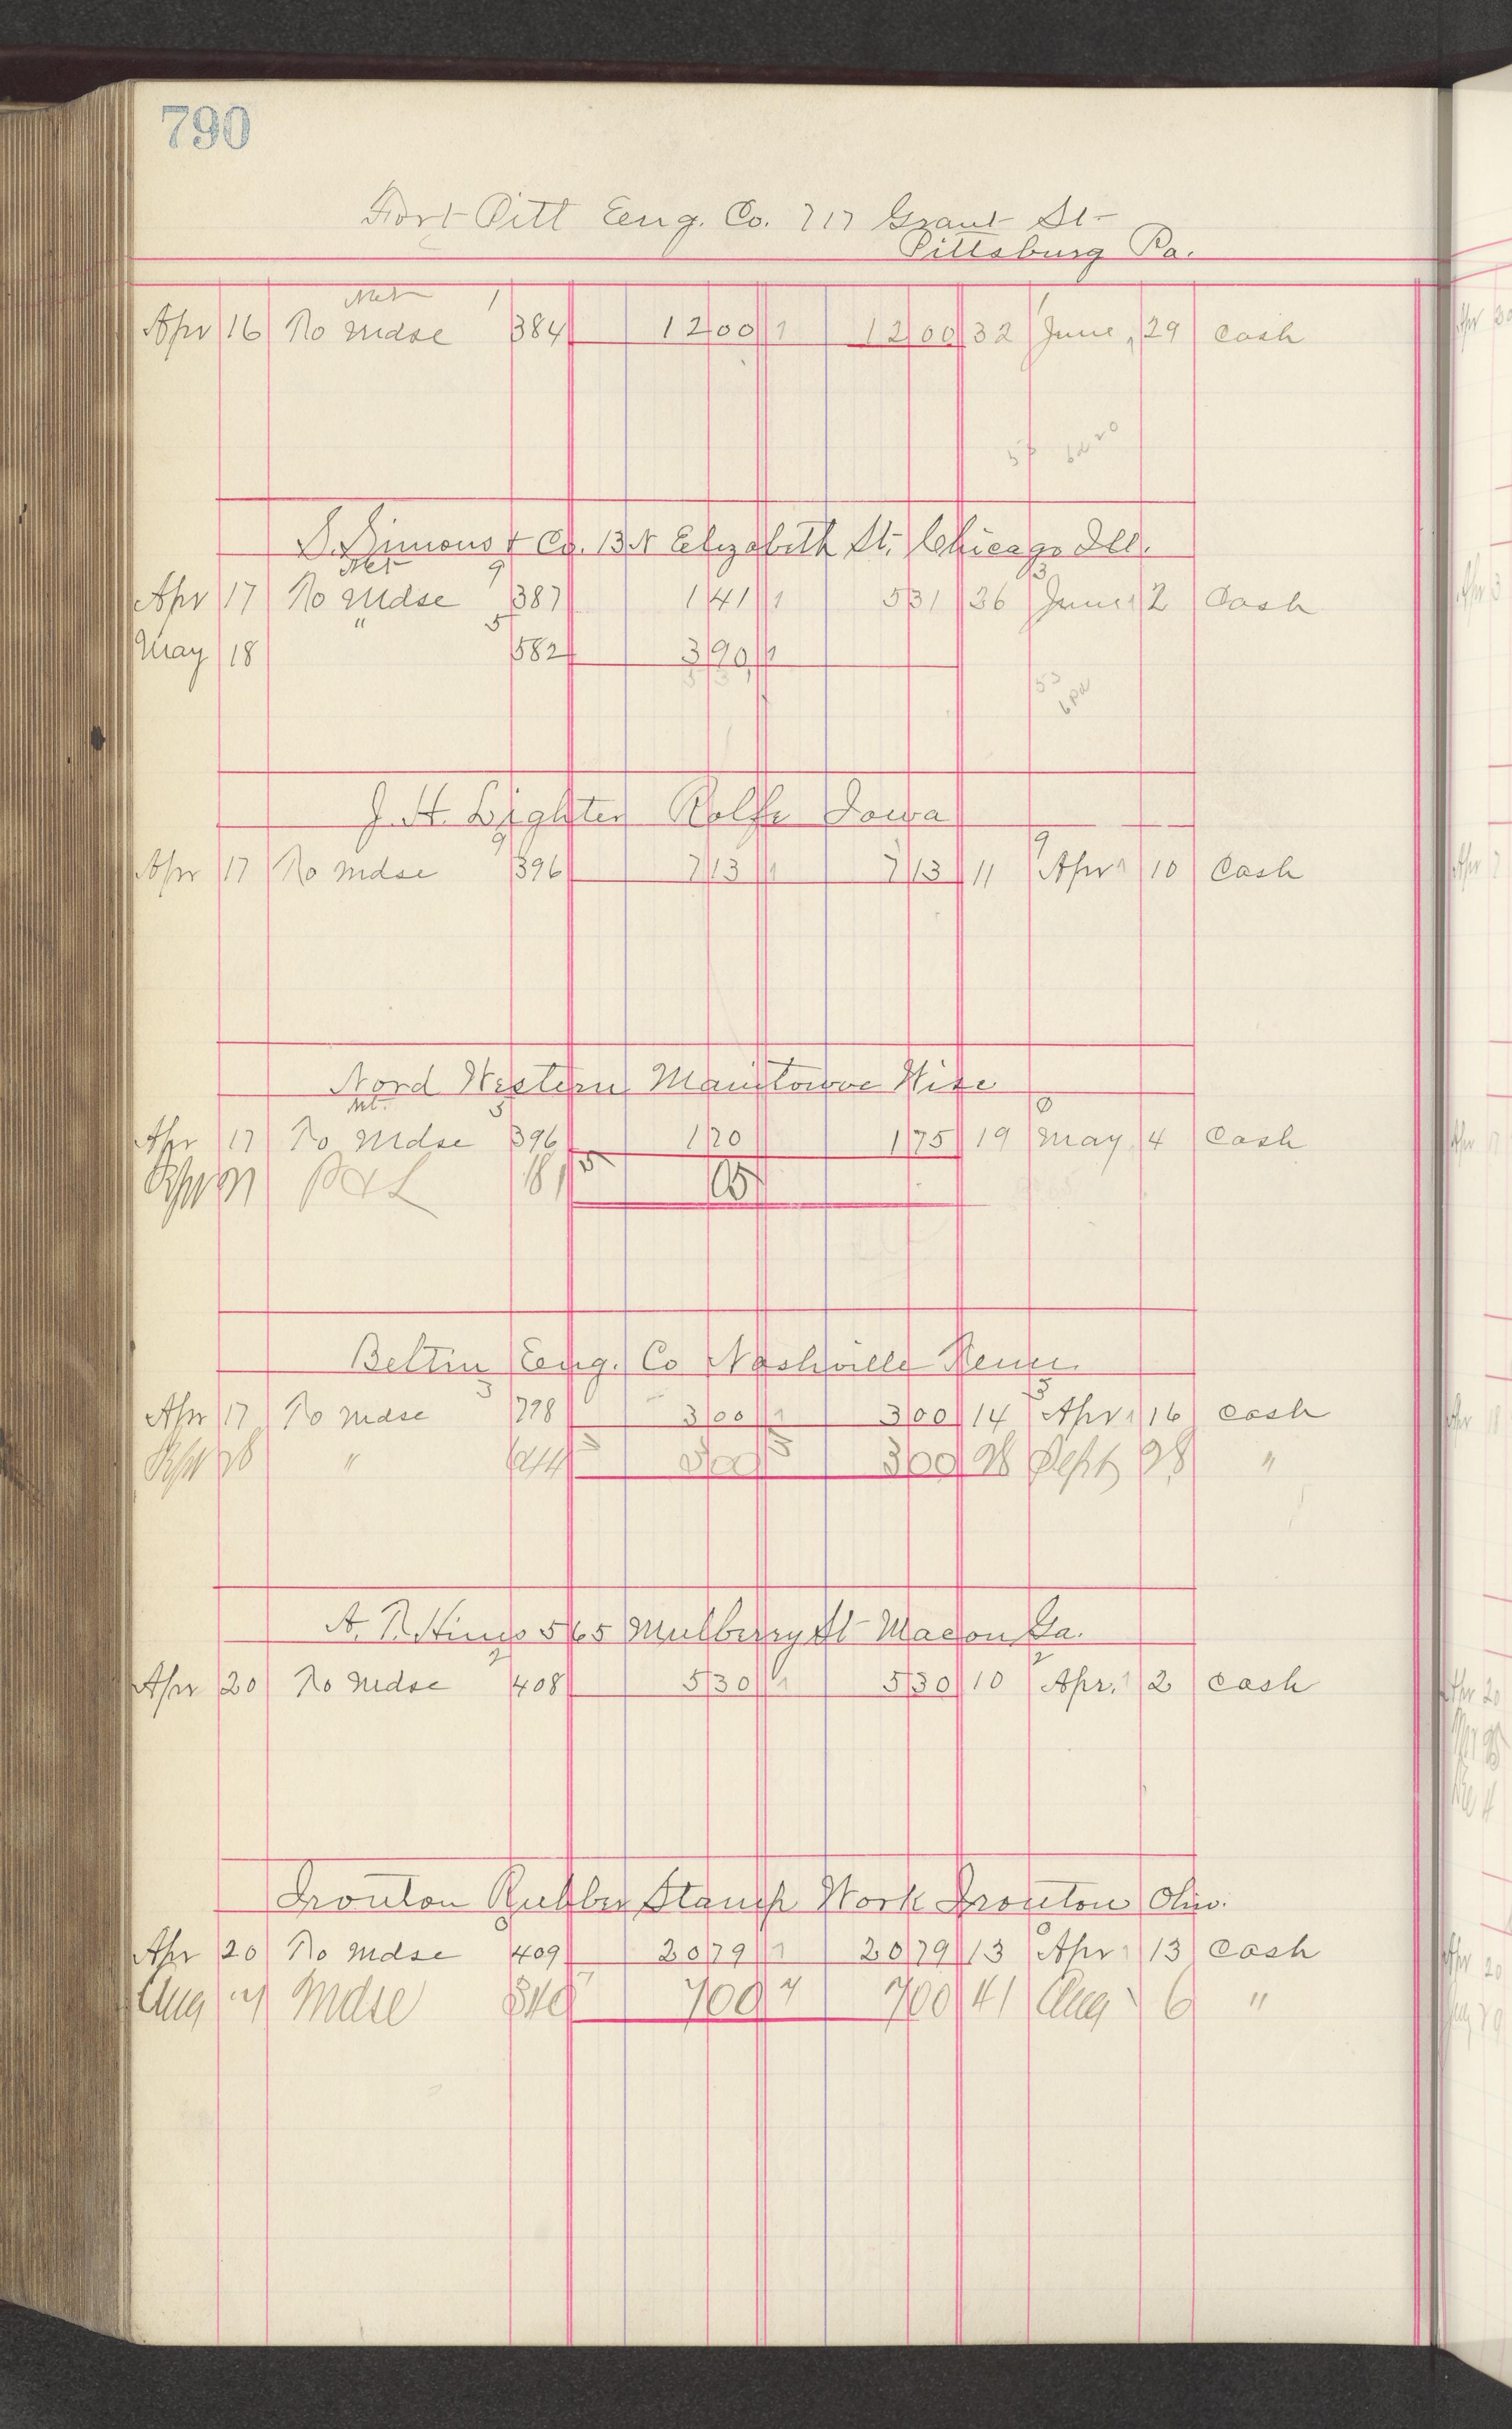 790
Fort Pitt Eng. Co. 717 Grant St
Pittsburg Pa.
Net 1 1
Apr 16 To Mdse 384 12 00 1 12 00 32 June 29 Cash
S. Simons & Co. 13 N Elizabeth St. Chicago Ill.
Net 9 3
Apr 17 To Mdse 387 1 41 1 5 31 36 June 2 Cash
May 18 " 5 582 3 90 1
J. H. Lighter Rolfe Iowa
9 9
Apr 17 To Mdse 396 7 13 1 7 13 11 Apr 10 Cash
Nord Western Manitowoc Wisc
Nt. 5 0
Apr 17 To Mdse 396 1 70 1 75 19 May 4 Cash
P & L 181 5 05
Beltin Eng. Co Nashville Tenn.
3 3
Apr 17 To Mdse 798 3 00 1 3 00 14 Apr 16 Cash
28 " 3 00 3 00 28 Sept 28 "
A. T. Hines 565 Mulberry St Macon Ga.
2 2
Apr 20 To Mdse 408 5 30 1 5 30 10 Apr. 2 Cash
Ironton Rubber Stamp Work Ironton Ohio.
0 0
Apr 20 To Mdse 409 20 79 1 20 79 13 Apr 13 Cash
Aug Mdse 7 00 7 00 41 Aug 6 "